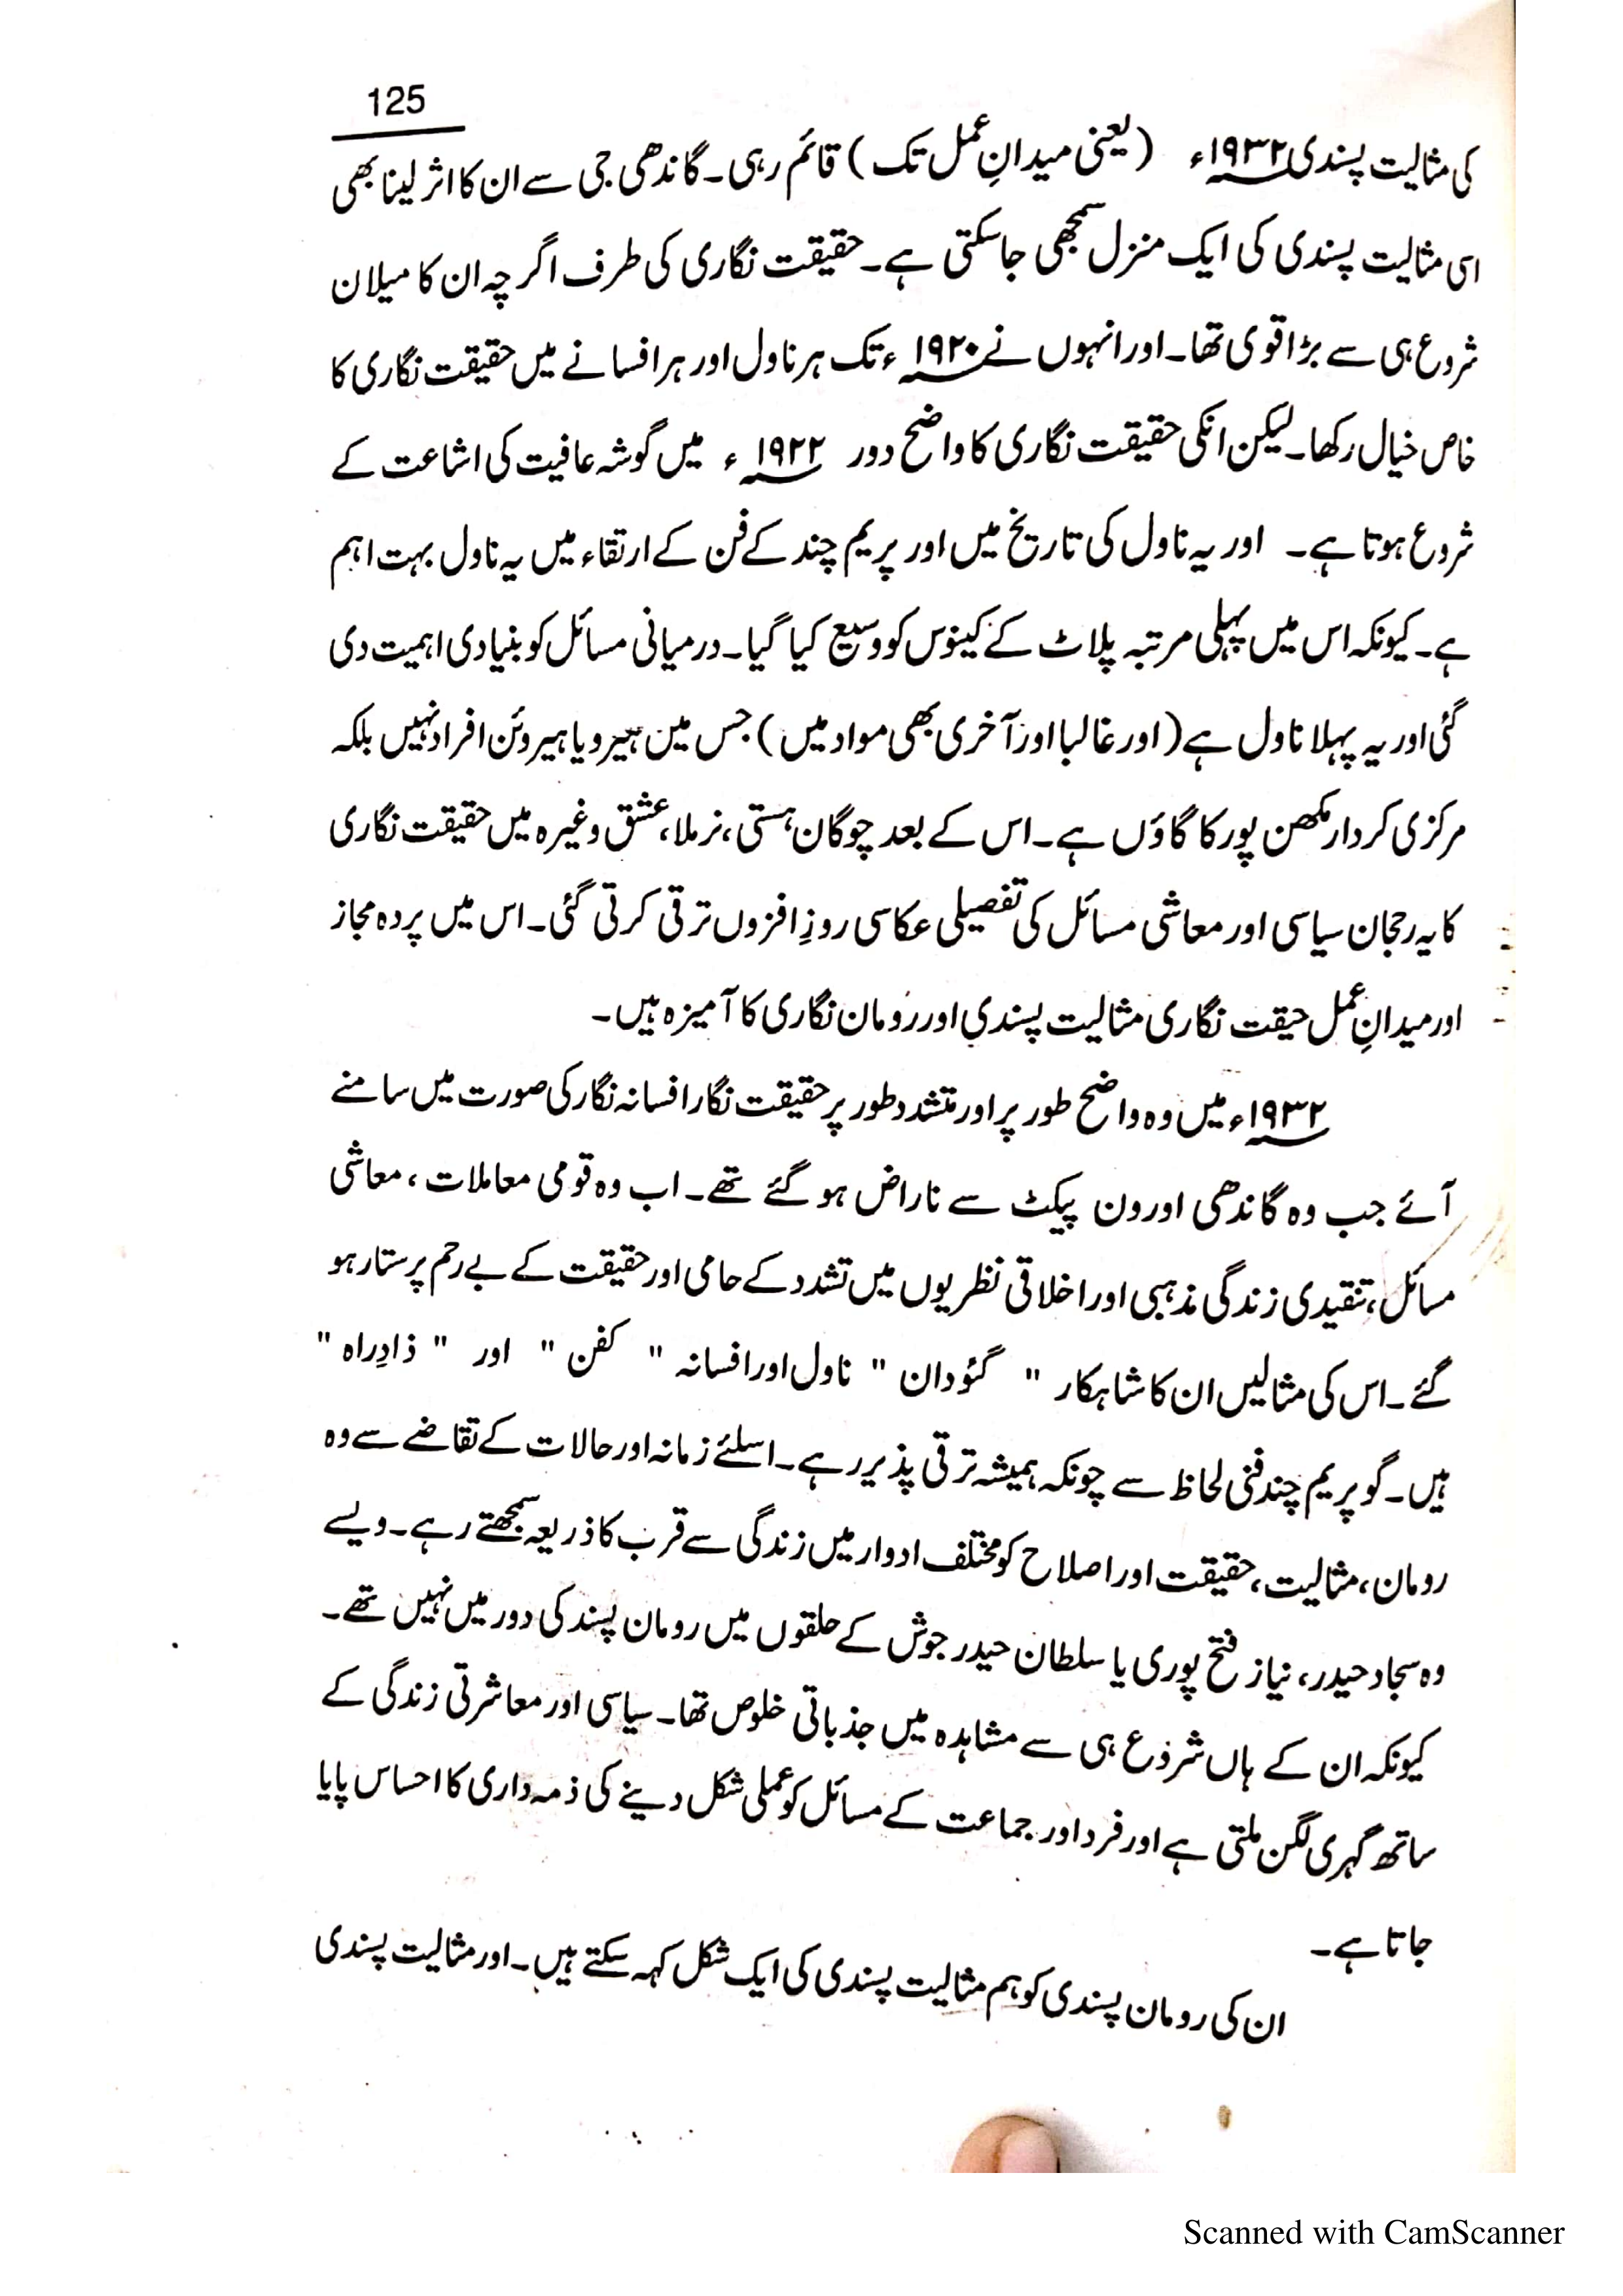 125
کی مثالیت پسندی ۱۹۳۲ء (یعنی میدانِ عمل تک) قائم رہی۔ گاندھی جی سے ان کا اثر لینا بھی
اسی مثالیت پسندی کی ایک منزل سمجھی جاسکتی ہے۔ حقیقت نگاری کی طرف اگرچہ ان کا میلان
شروع ہی سے بڑا قوی تھا۔ اور انہوں نے ۱۹۲۰ء تک ہر ناول اور ہر افسانے میں حقیقت نگاری کا
خاص خیال رکھا۔ لیکن انکی حقیقت نگاری کا واضح دور ۱۹۲۲ء میں گوشہ عافیت کی اشاعت کے
شروع ہوتا ہے۔ اور یہ ناول کی تاریخ میں اور پریم چند کے فن کے ارتقاء میں یہ ناول بہت اہم
ہے۔ کیونکہ اس میں پہلی مرتبہ پلاٹ کے کینوس کو وسیع کیا گیا۔ درمیانی مسائل کو بنیادی اہمیت دی
گئی اور یہ پہلا ناول ہے (اور غالبا اور آخری بھی مواد میں) جس میں ہیرو یا ہیروئن افراد نہیں بلکہ
مرکزی کردار مکھن پور کا گاؤں ہے۔ اس کے بعد چوگان ہستی، نرملا، عشق وغیرہ میں حقیقت نگاری
کا یہ رجحان سیاسی اور معاشی مسائل کی تفصیلی عکاسی روزِ افزوں ترقی کرتی گئی۔ اس میں پردہ مجاز
اور میدانِ عمل حیقت نگاری مثالیت پسندی اور رومان نگاری کا آمیزہ ہیں۔
۱۹۳۲ء میں وہ واضح طور پر اور متشدد طور پر حقیقت نگار افسانہ نگار کی صورت میں سامنے
آئے جب وہ گاندھی اورون پیکٹ سے ناراض ہو گئے تھے۔ اب وہ قومی معاملات، معاشی
مسائل، تنقیدی زندگی مذہبی اور اخلاقی نظریوں میں تشدد کے حامی اور حقیقت کے بے رحم پرستار ہو
گئے۔ اس کی مثالیں ان کا شاہکار " گئودان " ناول اور افسانہ " کفن " اور " ذادِراہ "
ہیں۔ گو پریم چند فنی لحاظ سے چونکہ ہمیشہ ترقی پذیر رہے۔ اسلئے زمانہ اور حالات کے تقاضے سے وہ
رومان، مثالیت، حقیقت اور اصلاح کو مختلف ادوار میں زندگی سے قرب کا ذریعہ سمجھتے رہے۔ ویسے
وہ سجاد حیدر، نیاز فتح پوری یا سلطان حیدر جوش کے حلقوں میں رومان پسند کی دور میں نہیں تھے۔
کیونکہ ان کے ہاں شروع ہی سے مشاہدہ میں جذباتی خلوص تھا۔ سیاسی اور معاشرتی زندگی کے
ساتھ گہری لگن ملتی ہے اور فرد اور جماعت کے مسائل کو عملی شکل دینے کی ذمہ داری کا احساس پایا
جاتا ہے۔
ان کی رومان پسندی کو ہم مثالیت پسندی کی ایک شکل کہہ سکتے ہیں۔ اور مثالیت پسندی
Scanned with CamScanner